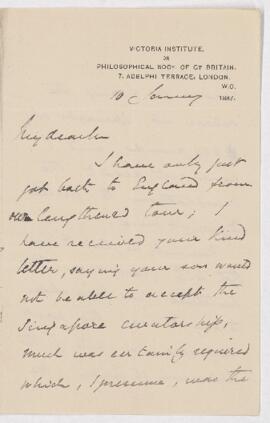 VICTORIA INSTITUTE,
OR
PHILOSOPHICAL SOCY. OF GT BRITAIN.
7, ADELPHI TERRACE, LONDON.
W.C.
10 January 188
My dear
I have only just
got back to England from
a lengthened tour; I
have received your kind
letter, saying your son would
not be able to accept the
Singapore curatorship,
much was certainly required
which, I presume, was the